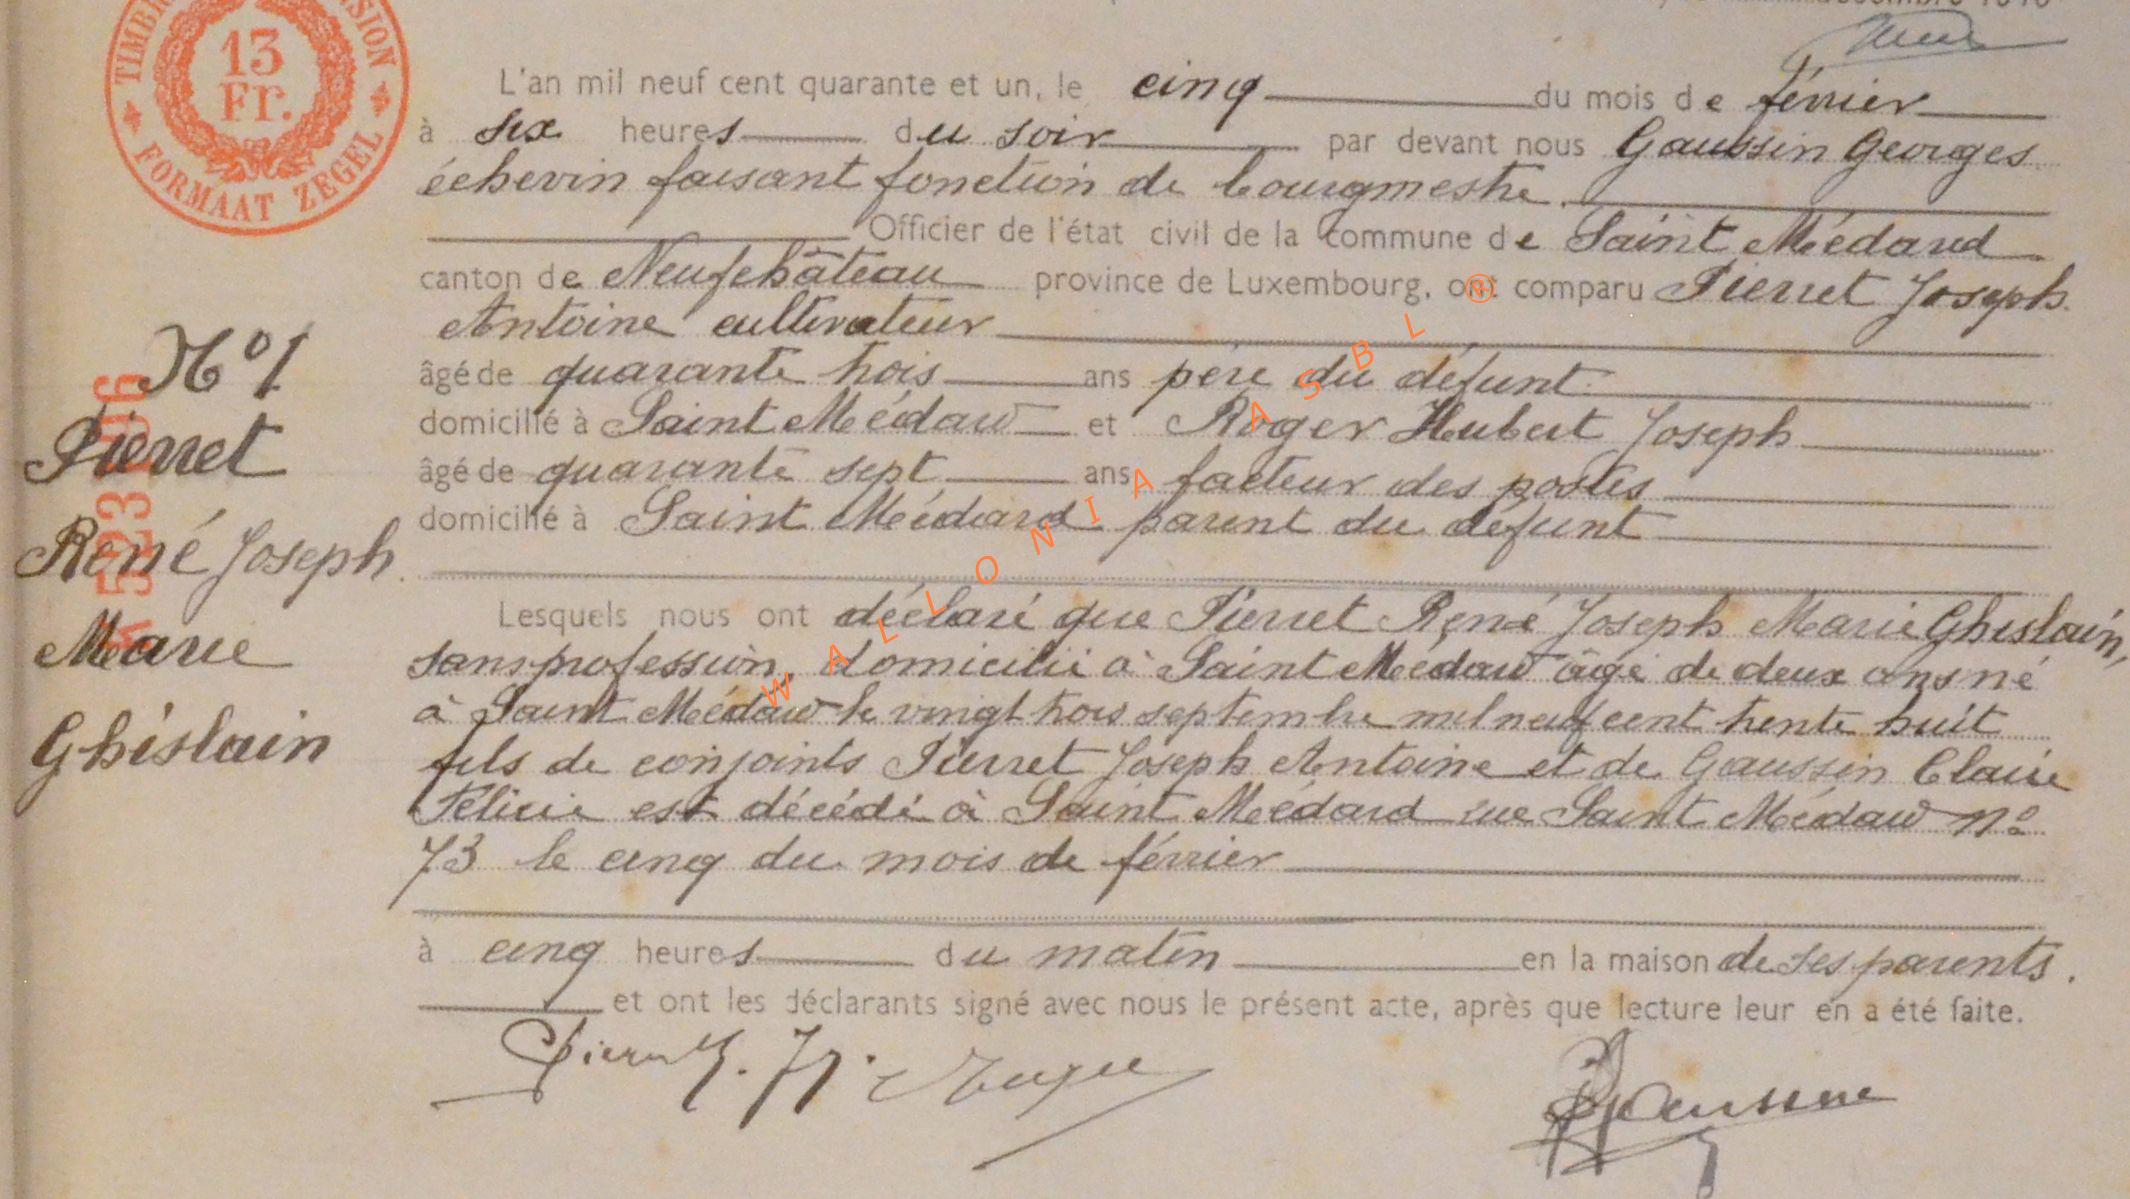 TIMBRE
SION
13
Fr.
FORMAAT ZEGEL
L'an mil neuf cent quarante et un, le cinq du mois de février
à six heures du soir par devant nous Gaussin Georges
échevin faisant fonction de bourgmestre.
Officier de l'état civil de la commune de Saint Médard
canton de Neufchâteau province de Luxembourg, ont comparu Pierret Joseph
Antoine cultivateur
âgé de quarante trois ans père du défunt
domicilié à Saint Médard et Roger Hubert Joseph
âgé de quarante sept ans facteur des postes
domicilié à Saint Médard parent du défunt
N° 1
Pierret
René Joseph
Marie
Ghislain
Lesquels nous ont déclaré que Pierret René Joseph Marie Ghislain,
sans profession, domicilié à Saint Médard âgé de deux ans né
à Saint Médard le vingt trois septembre mil neuf cent trente huit
fils de conjoints Pierret Joseph Antoine et de Gaussin Claire
Félicie est décédé à Saint Médard rue Saint Médard n°
73 le cinq du mois de février
à cinq heures du matin en la maison de ses parents.
et ont les déclarants signé avec nous le présent acte, après que lecture leur en a été faite.
WALLONIA ASBL ®